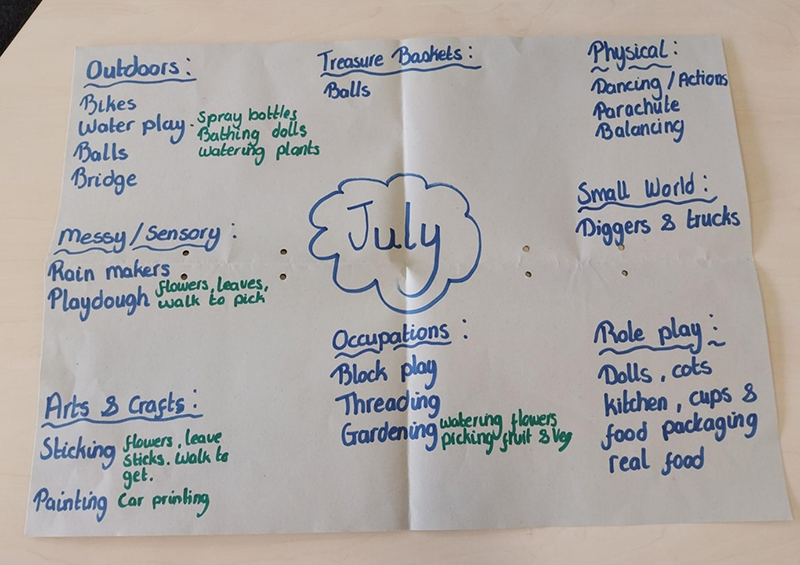 Outdoors:
Bikes
Water play - Spray bottles
Bathing dolls
watering plants
Balls
Bridge
Treasure Baskets:
Balls
Physical:
Dancing / Actions
Parachute
Balancing
Small World:
Diggers & trucks
Messy / Sensory:
Rain makers
Playdough flowers, leaves,
walk to pick
July
Occupations:
Block play
Threading
Gardening watering flowers
picking fruit & veg
Role play:
Dolls, cots
kitchen, cups &
food packaging
real food
Arts & Crafts:
Sticking flowers, leave
sticks. walk to
get.
Painting Car printing